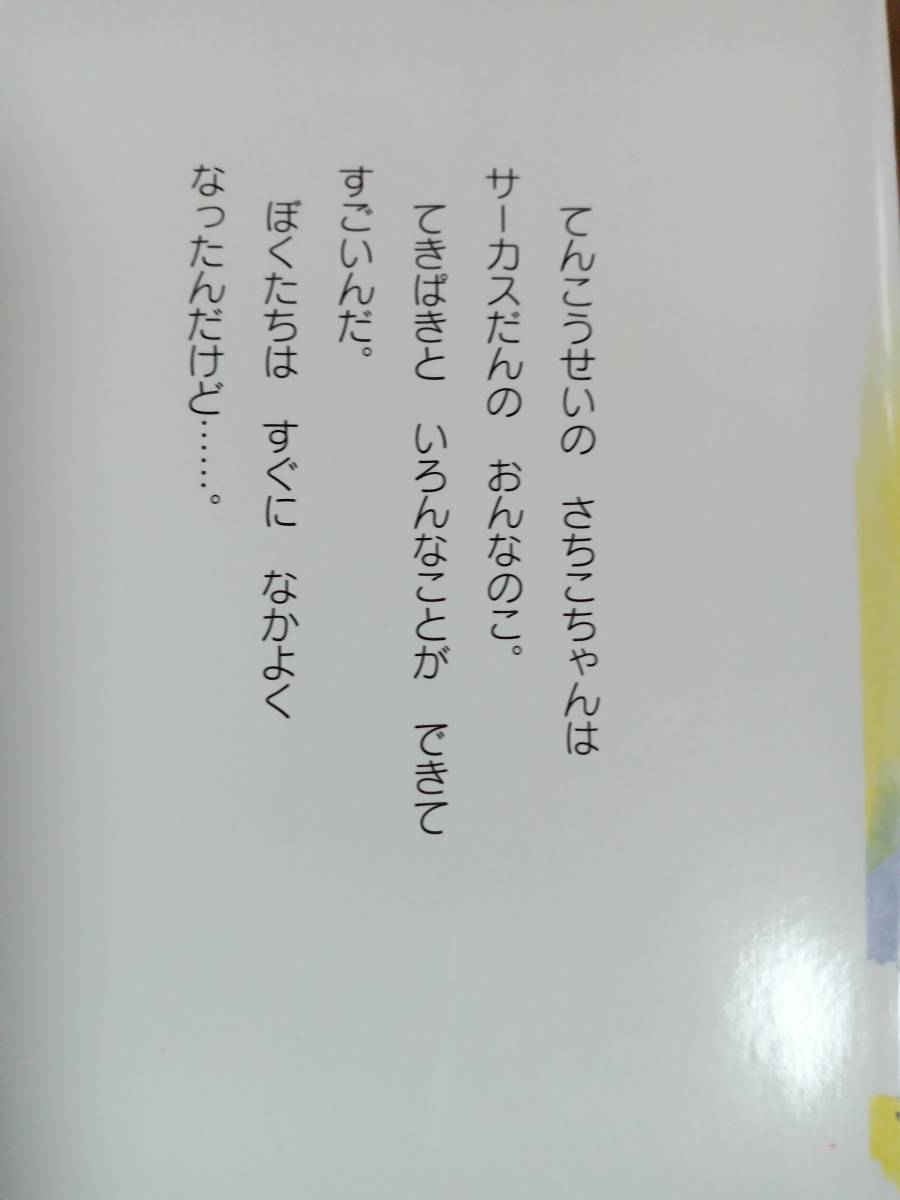 てんこうせいの　さちこちゃんは
サーカスだんの　おんなのこ。
てきぱきと　いろんなことが　できて
すごいんだ。
ぼくたちは　すぐに　なかよく
なったんだけど……。